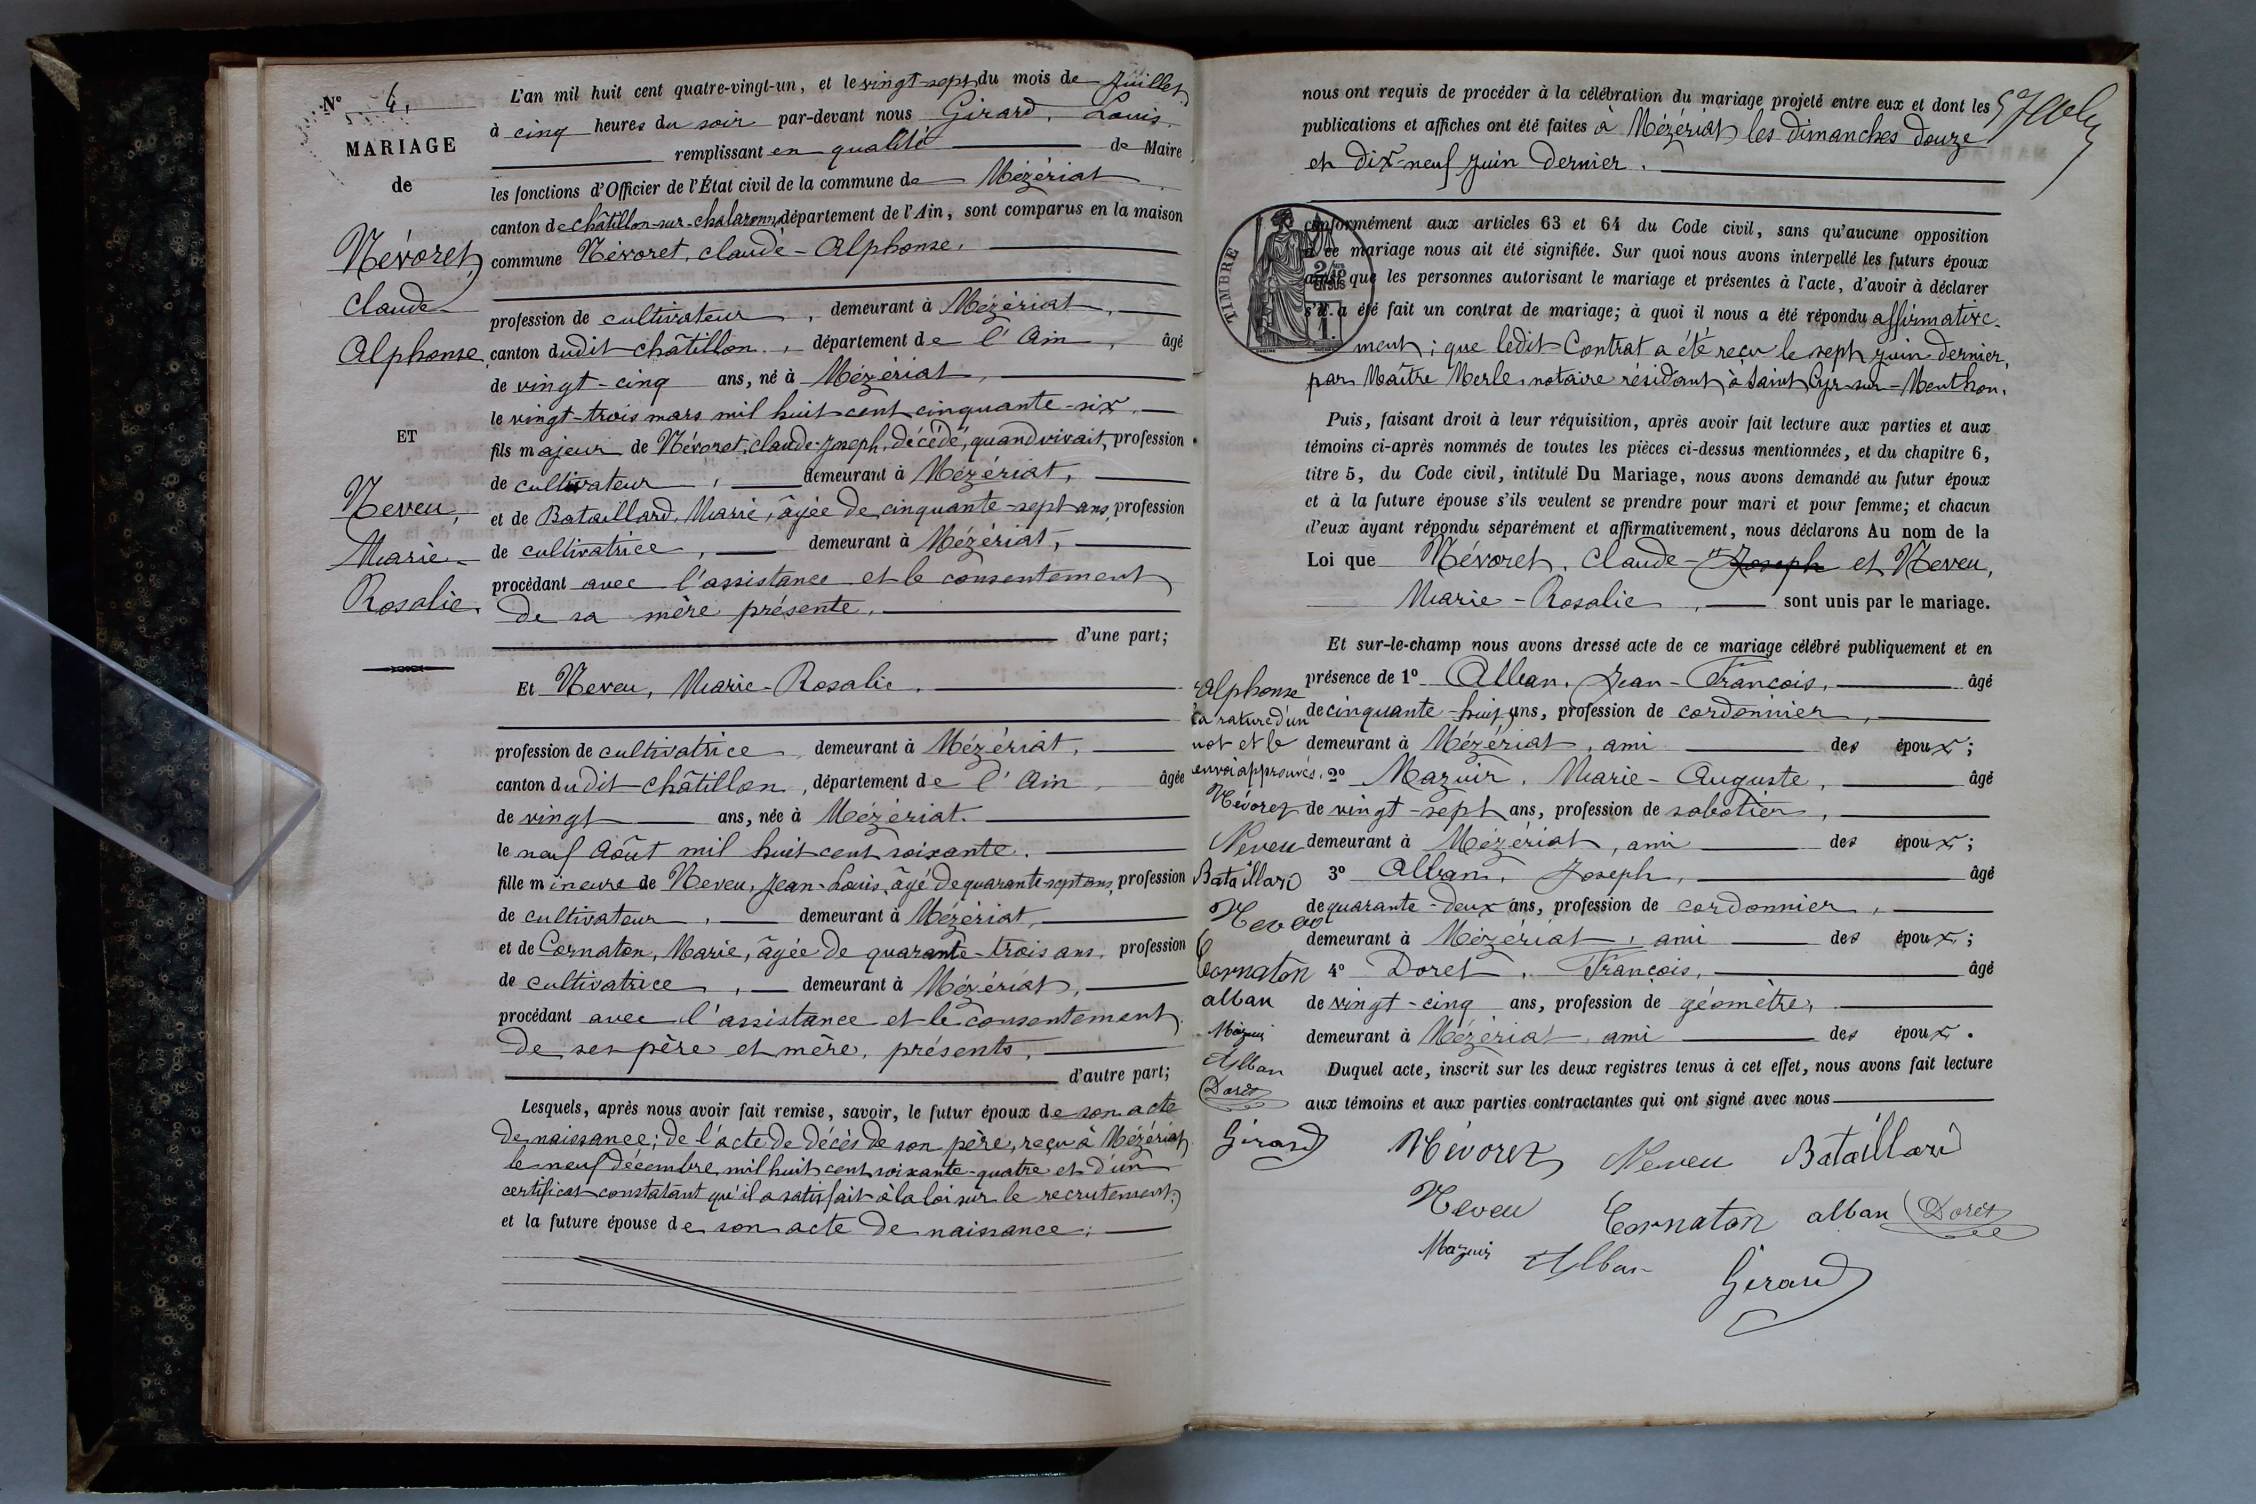 N° 4.
MARIAGE
de
Névoret,
Claude
Alphonse
ET
Neveu,
Marie
Rosalie.
L'an mil huit cent quatre-vingt-un, et le vingt-sept du mois de Juillet
à cinq heures du soir par-devant nous Girard, Louis,
remplissant en qualité de Maire
les fonctions d'Officier de l'État civil de la commune de Mézériat
canton de Châtillon-sur-Chalaronne département de l'Ain, sont comparus en la maison
commune Névoret, Claude-Alphonse,
profession de cultivateur, demeurant à Mézériat,
canton dudit Châtillon, département de l'Ain, âgé
de vingt-cinq ans, né à Mézériat,
le vingt-trois mars mil huit cent cinquante-six,
fils majeur de Névoret, Claude-Joseph, décédé, quand vivait, profession
de cultivateur, demeurant à Mézériat,
et de Bataillard, Marie, âgée de cinquante-sept ans, profession
de cultivatrice, demeurant à Mézériat,
procédant avec l'assistance et le consentement
de sa mère présente,
d'une part;
Et Neveu, Marie-Rosalie,
profession de cultivatrice demeurant à Mézériat,
canton dudit Châtillon, département de l'Ain, âgée
de vingt ans, née à Mézériat.
le neuf Août mil huit cent soixante.
fille mineure de Neveu, Jean-Louis, âgé de quarante-sept ans, profession
de cultivateur, demeurant à Mézériat,
et de Cornaton, Marie, âgée de quarante-trois ans, profession
de cultivatrice, demeurant à Mézériat,
procédant avec l'assistance et le consentement
de ses père et mère, présents,
d'autre part;
Lesquels, après nous avoir fait remise, savoir, le futur époux de son acte
de naissance; de l'acte de décès de son père, reçu à Mézériat
le neuf décembre mil huit cent soixante-quatre et d'un
certificat constatant qu'il a satisfait à la loi sur le recrutement;
et la future épouse de son acte de naissance;
nous ont requis de procéder à la célébration du mariage projeté entre eux et dont les
publications et affiches ont été faites à Mézériat les dimanches douze
et dix-neuf juin dernier.
TIMBRE
conformément aux articles 63 et 64 du Code civil, sans qu'aucune opposition
à ce mariage nous ait été signifiée. Sur quoi nous avons interpellé les futurs époux
ainsi que les personnes autorisant le mariage et présentes à l'acte, d'avoir à déclarer
s'il a été fait un contrat de mariage; à quoi il nous a été répondu affirmative-
ment; que ledit Contrat a été reçu le sept juin dernier,
par Maître Merle, notaire résidant à Saint Cyr-sur-Menthon.
Puis, faisant droit à leur réquisition, après avoir fait lecture aux parties et aux
témoins ci-après nommés de toutes les pièces ci-dessus mentionnées, et du chapitre 6,
titre 5, du Code civil, intitulé Du Mariage, nous avons demandé au futur époux
et à la future épouse s'ils veulent se prendre pour mari et pour femme; et chacun
d'eux ayant répondu séparément et affirmativement, nous déclarons Au nom de la
Loi que Névoret, Claude-Joseph et Neveu,
Marie-Rosalie, sont unis par le mariage.
Et sur-le-champ nous avons dressé acte de ce mariage célébré publiquement et en
présence de 1° Alban, Jean-François, âgé
de cinquante-huit ans, profession de cordonnier,
demeurant à Mézériat, ami des époux;
2° Mazuir, Marie-Auguste, âgé
de vingt-sept ans, profession de sabotier,
demeurant à Mézériat, ami des époux;
3° Alban, Joseph, âgé
de quarante-deux ans, profession de cordonnier,
demeurant à Mézériat, ami des époux;
4° Doret, François, âgé
de vingt-cinq ans, profession de géomètre,
demeurant à Mézériat ami des époux.
Duquel acte, inscrit sur les deux registres tenus à cet effet, nous avons fait lecture
aux témoins et aux parties contractantes qui ont signé avec nous
Alphonse
la rature d'un
mot et le
envoi approuvés.
Névoret
Neveu
Bataillard
Neveu
Cornaton
alban
Mazuir
Alban
Doret
Girard
Névoret Neveu Bataillard
Neveu Cornaton alban Doret
Mazuir Alban Girard